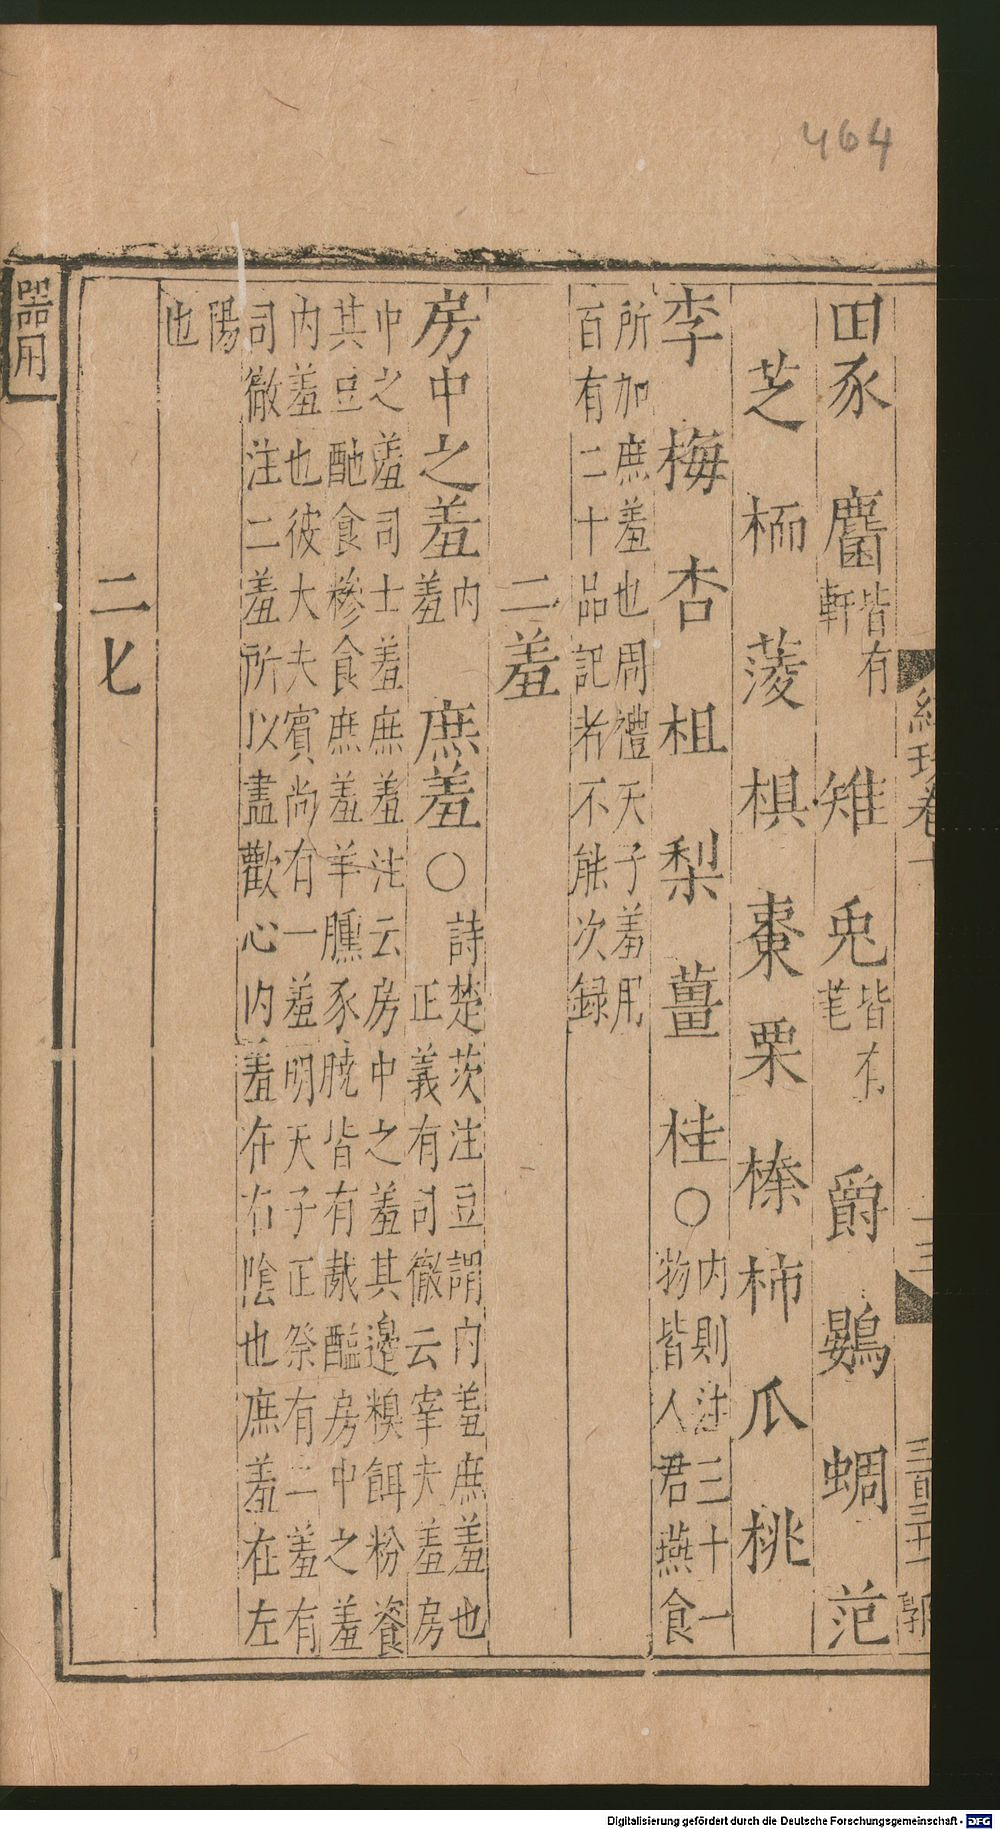 464
田豕　麕皆有軒　雉　兎皆有芼　爵　鷃　蜩　范
芝　栭　蓤　椇　棗　栗　榛　柿　瓜　桃
李　梅　杏　柤　梨　薑　桂○内則注三十一物皆人君燕食
所加庶羞也周禮天子羞用
百有二十品記者不能次録
二羞
房中之羞内羞　庶羞○詩楚茨注豆謂内羞庶羞也
正義有司徹云宰夫羞房
中之羞司士羞庶羞注云房中之羞其籩糗餌粉餈
其豆酏食糝食庶羞羊臐豕膮皆有胾醢房中之羞
内羞也彼大夫賓尚有二羞明天子正祭有二羞有
司徹注二羞所以盡歡心内羞在右陰也庶羞在左
陽
也
二七
器用
三百三十一
Digitalisierung gefördert durch die Deutsche Forschungsgemeinschaft - DFG